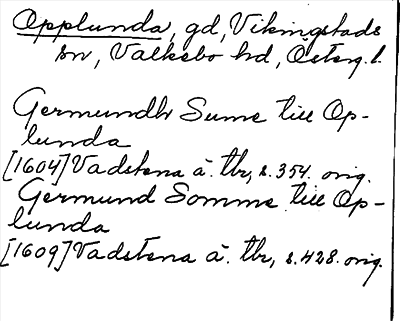 Opplunda, gd, Vikingstads
sn, Valkebo hd, Österg. l.
Germundh Sume till Op-
lunda
[1604] Vadstena ä. tbr, s. 354. orig.
Germund Somme till Op-
lunda
[1609] Vadstena ä. tbr, s. 428. orig.